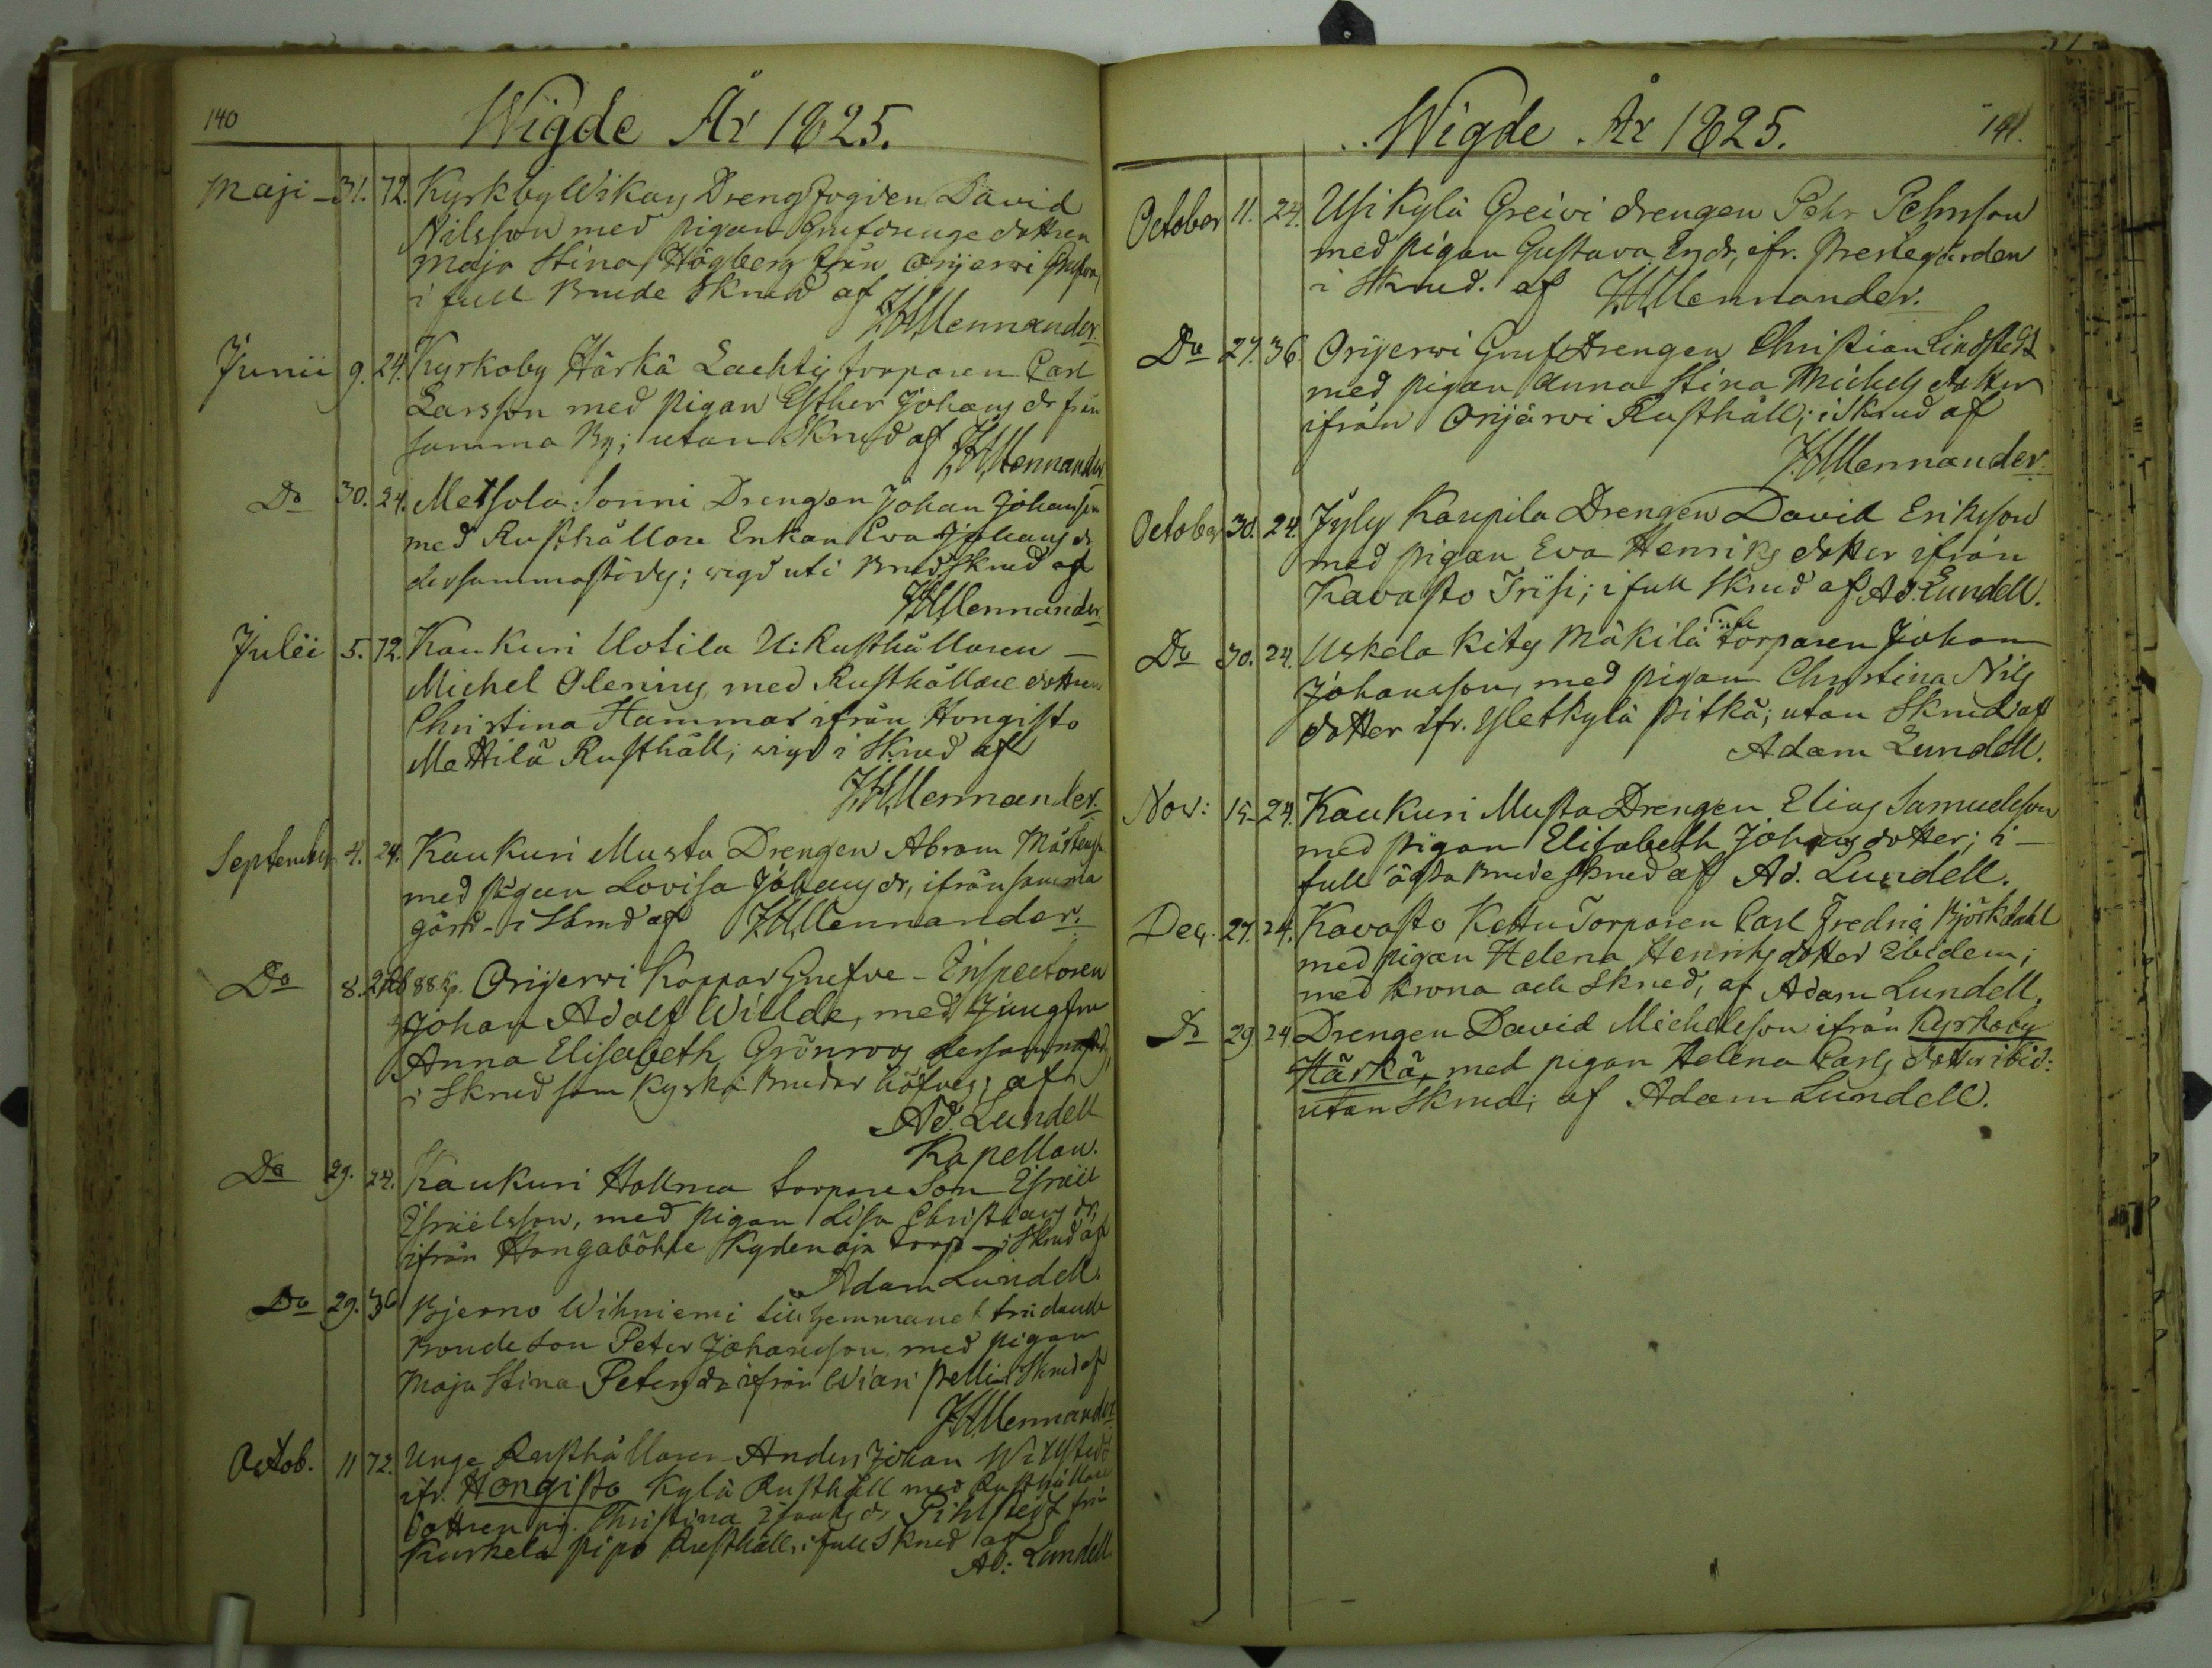 140
Wigde År 1825.
Maji 31. 72. Kyrkby Wikars Drengfogden David
Nilsson med pigan Grufdrenge dottren
Maja Stina Högberg från Orijerwi Grufva,
i full Brude Skrud af
J.H. Mennander.
Junii 9. 24. Kyrkoby Härkä Lachtis torparen Carl
Larsson med pigan Esther Johans dr från
samma By; utan Skrud af J.H. Mennander
Do 30. 24. Metsola Sonni Drengen Johan Johansson
med Rusthållare Enkan Eva Johans dr
dersammastädes; wigd uti Brudskrud af
J.H. Mennander
Julii 5. 72. Kaukuri Uotila U: Rusthållaren –
Michel Olenius, med Rusthållare dottren
Christina Hammar ifrån Hongisto
Mattila Rusthåll; wigd i Skrud af
J.H. Mennander.
September 4. 24. Kaukuri Musta Drengen Abram Mårtensson
med pigan Lovisa Johans dr, ifrån samma
gård – i Skrud af J.H. Mennander.
Do 8. 2 Rb 88 kp. Orijerwi Koppar Grufve – Inspectoren
Johan Adolf Willde, med Jungfru
Anna Elisabeth Grönroos dersammast:,
i Skrud som Kyska Brudar höfves; af
Ad. Lundell
Kapellan.
Do 29. 24. Kaukuri Hollma torpare Son Esraël
Esraëlsson, med pigan Lisa Christians dr,
ifrån Hongaböhle Kydenoja torp – i Skrud af
Adam Lundell.
Do 29. 36 Bjerno Wihniemi till hemmanet trädande
Bonde Son Peter Johansson med pigan
Maja Stina Peters dr ifrån Wiari Pelli i Skrud af
J.H. Mennander
Octob. 11 72. Unge Rusthållaren Anders Johan Willstedt
ifr. Hongisto Kylä Rusthåll med Rusthållare
dottren pig. Christina Isaaks dr Pihlstedt från
Kurkela Pipo Rusthåll, i full Skrud af
Ad: Lundell
Wigde År 1825.
141.
October 11. 24. Usikylä Greivi drengen Pehr Pehrsson
med pigan Gustava Er.dr, ifr. Prestegården
i Skrud. af J.H. Mennander.
Do 27. 36 Orijerwi Gruf Drengen Christian Lindstedt
med pigan Anna Stina Michels dotter
ifrån Orijärvi Rusthåll; i Skrud af
J.H. Mennander.
October 30. 24. Jyly Kaupila Drengen David Eriksson
med pigan Eva Henriks dotter ifrån
Kavasto Irisi; i full Skrud af Ad. Lundell.
Do 30. 24. Uskela Kitis Mäkilä torparen Johan
Johansson, med pigan Christina Nils
dotter ifr. Yletkylä Pitkä; utan Skrud af
Adam Lundell.
Nov: 15. 24. Kaukuri Musta Drengen Elias Samuelsson
med pigan Elisabeth Johans dotter; i –
full ägta Brude skrud af Ad. Lundell.
Dec. 27. 24. Kavasto Kettu Torparen Carl Fredric Björkdahl
med pigan Helena Henriks dotter Ibidem;
med Krona och Skrud, af Adam Lundell.
Do 29. 24. Drengen David Michelsson ifrån Kyrkoby
Härkä, med pigan Helena Carls dotter ibid:
utan Skrud; af Adam Lundell.